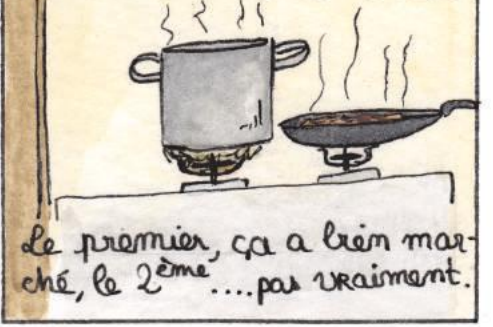 Le premier, ça a bien mar-
ché, le 2ème ....pas vraiment.